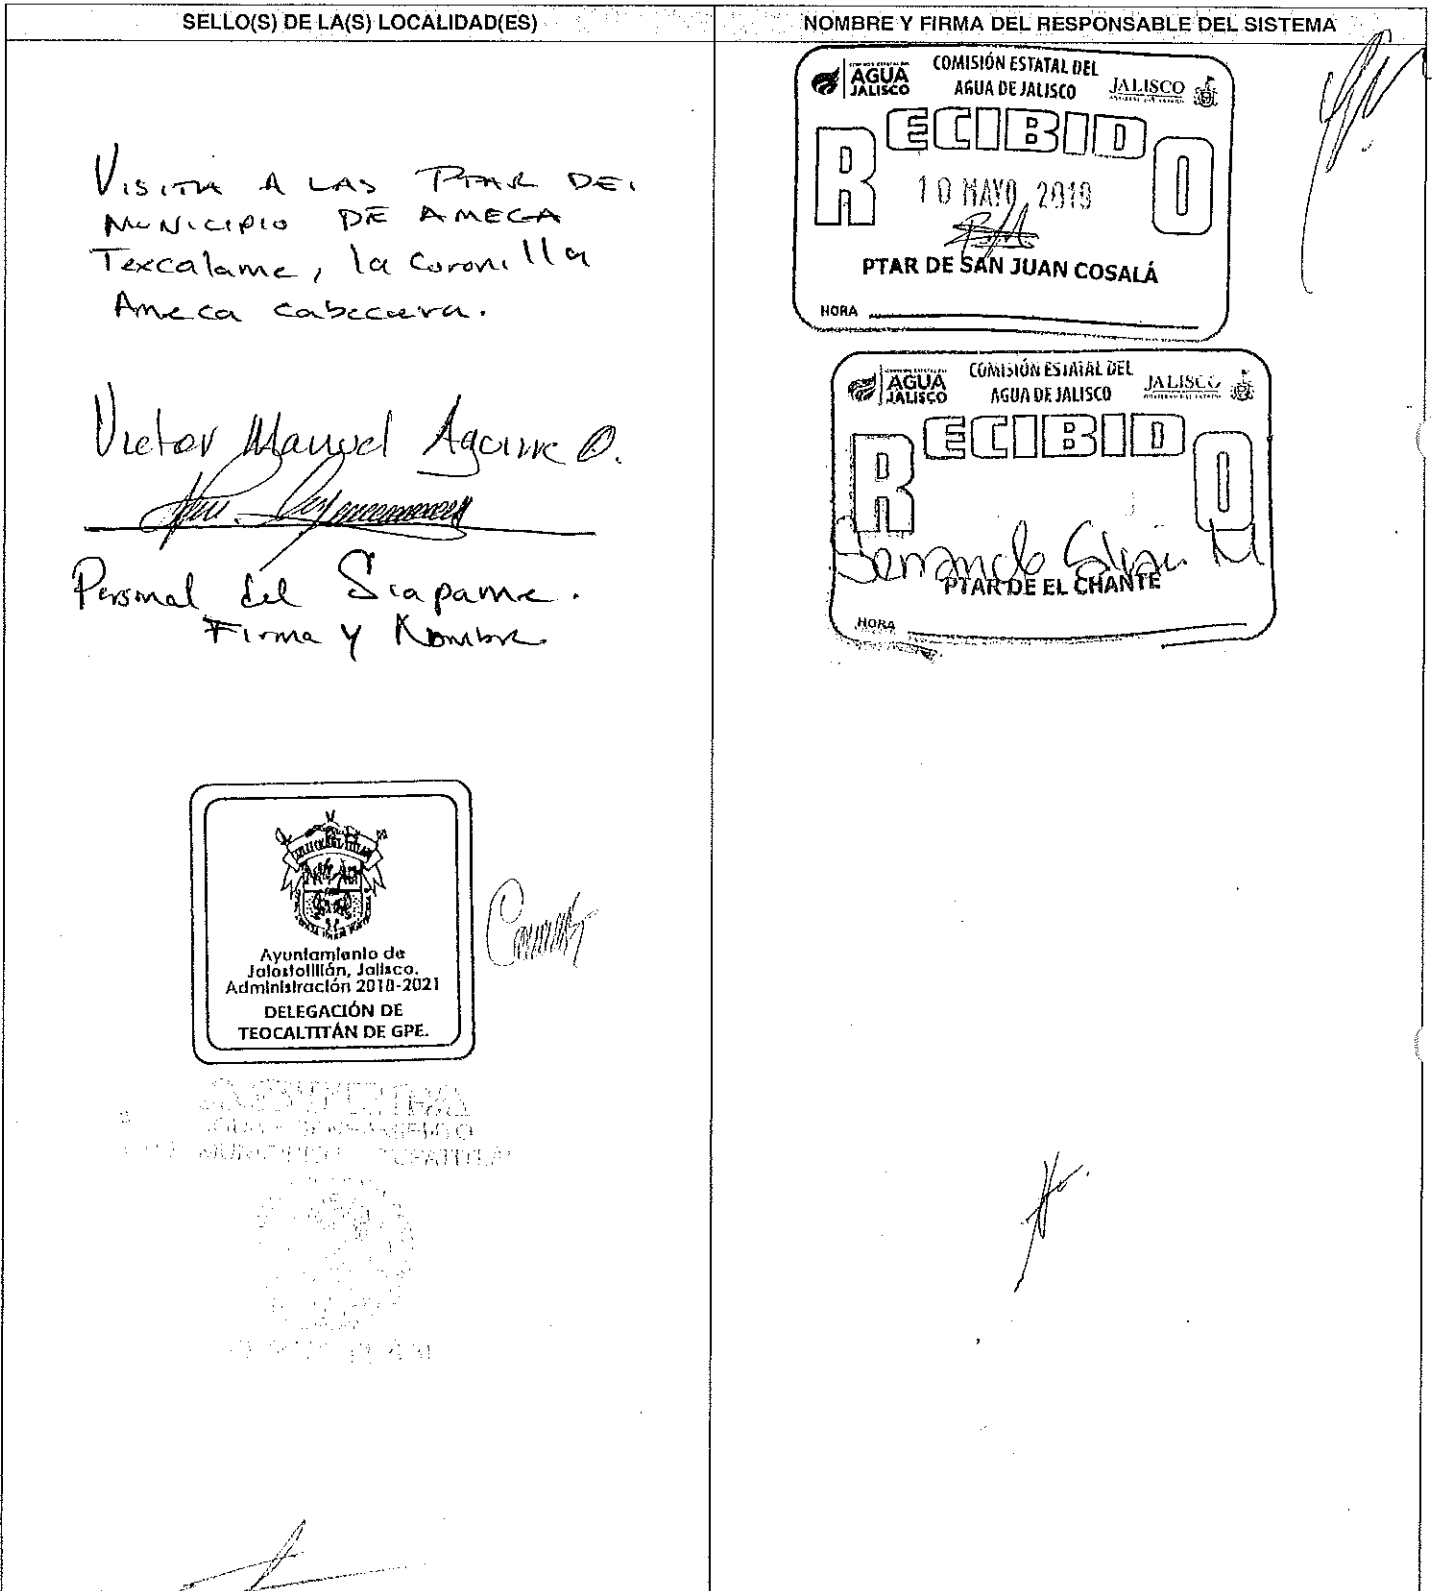 SELLO(S) DE LA(S) LOCALIDAD(ES)
VISITA A LAS PTAR DEL
MUNICIPIO DE AMECA
Texcalame, la Coronilla
Ameca cabecera.
Victor Manuel Aguirre O.
Personal del Siapame.
Firma y Nombre
Ayuntamiento de
Jalostotitlán, Jalisco.
Administración 2018-2021
DELEGACIÓN DE
TEOCALTITÁN DE GPE.
NOMBRE Y FIRMA DEL RESPONSABLE DEL SISTEMA
AGUA
JALISCO
COMISIÓN ESTATAL DEL
AGUA DE JALISCO
JALISCO
RECIBIDO
10 MAYO 2019
PTAR DE SAN JUAN COSALÁ
HORA
AGUA
JALISCO
COMISIÓN ESTATAL DEL
AGUA DE JALISCO
JALISCO
RECIBIDO
PTAR DE EL CHANTE
HORA